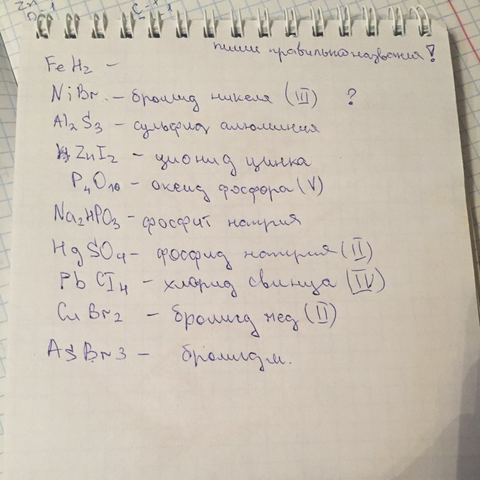 пиши правильно названия!
FeH2 –
NiBr. – бромид никеля (III) ?
Al2S3 – сульфид алюминия
ZnI2 – ционид цинка
P4O10 – оксид фосфора (V)
Na2HPO3 – фосфит натрия
HgSO4 – фосфид натрия (II)
PbCl4 – хлорид свинца (IV)
CuBr2 – бромид мед (II)
AsBr3 – бромидм.